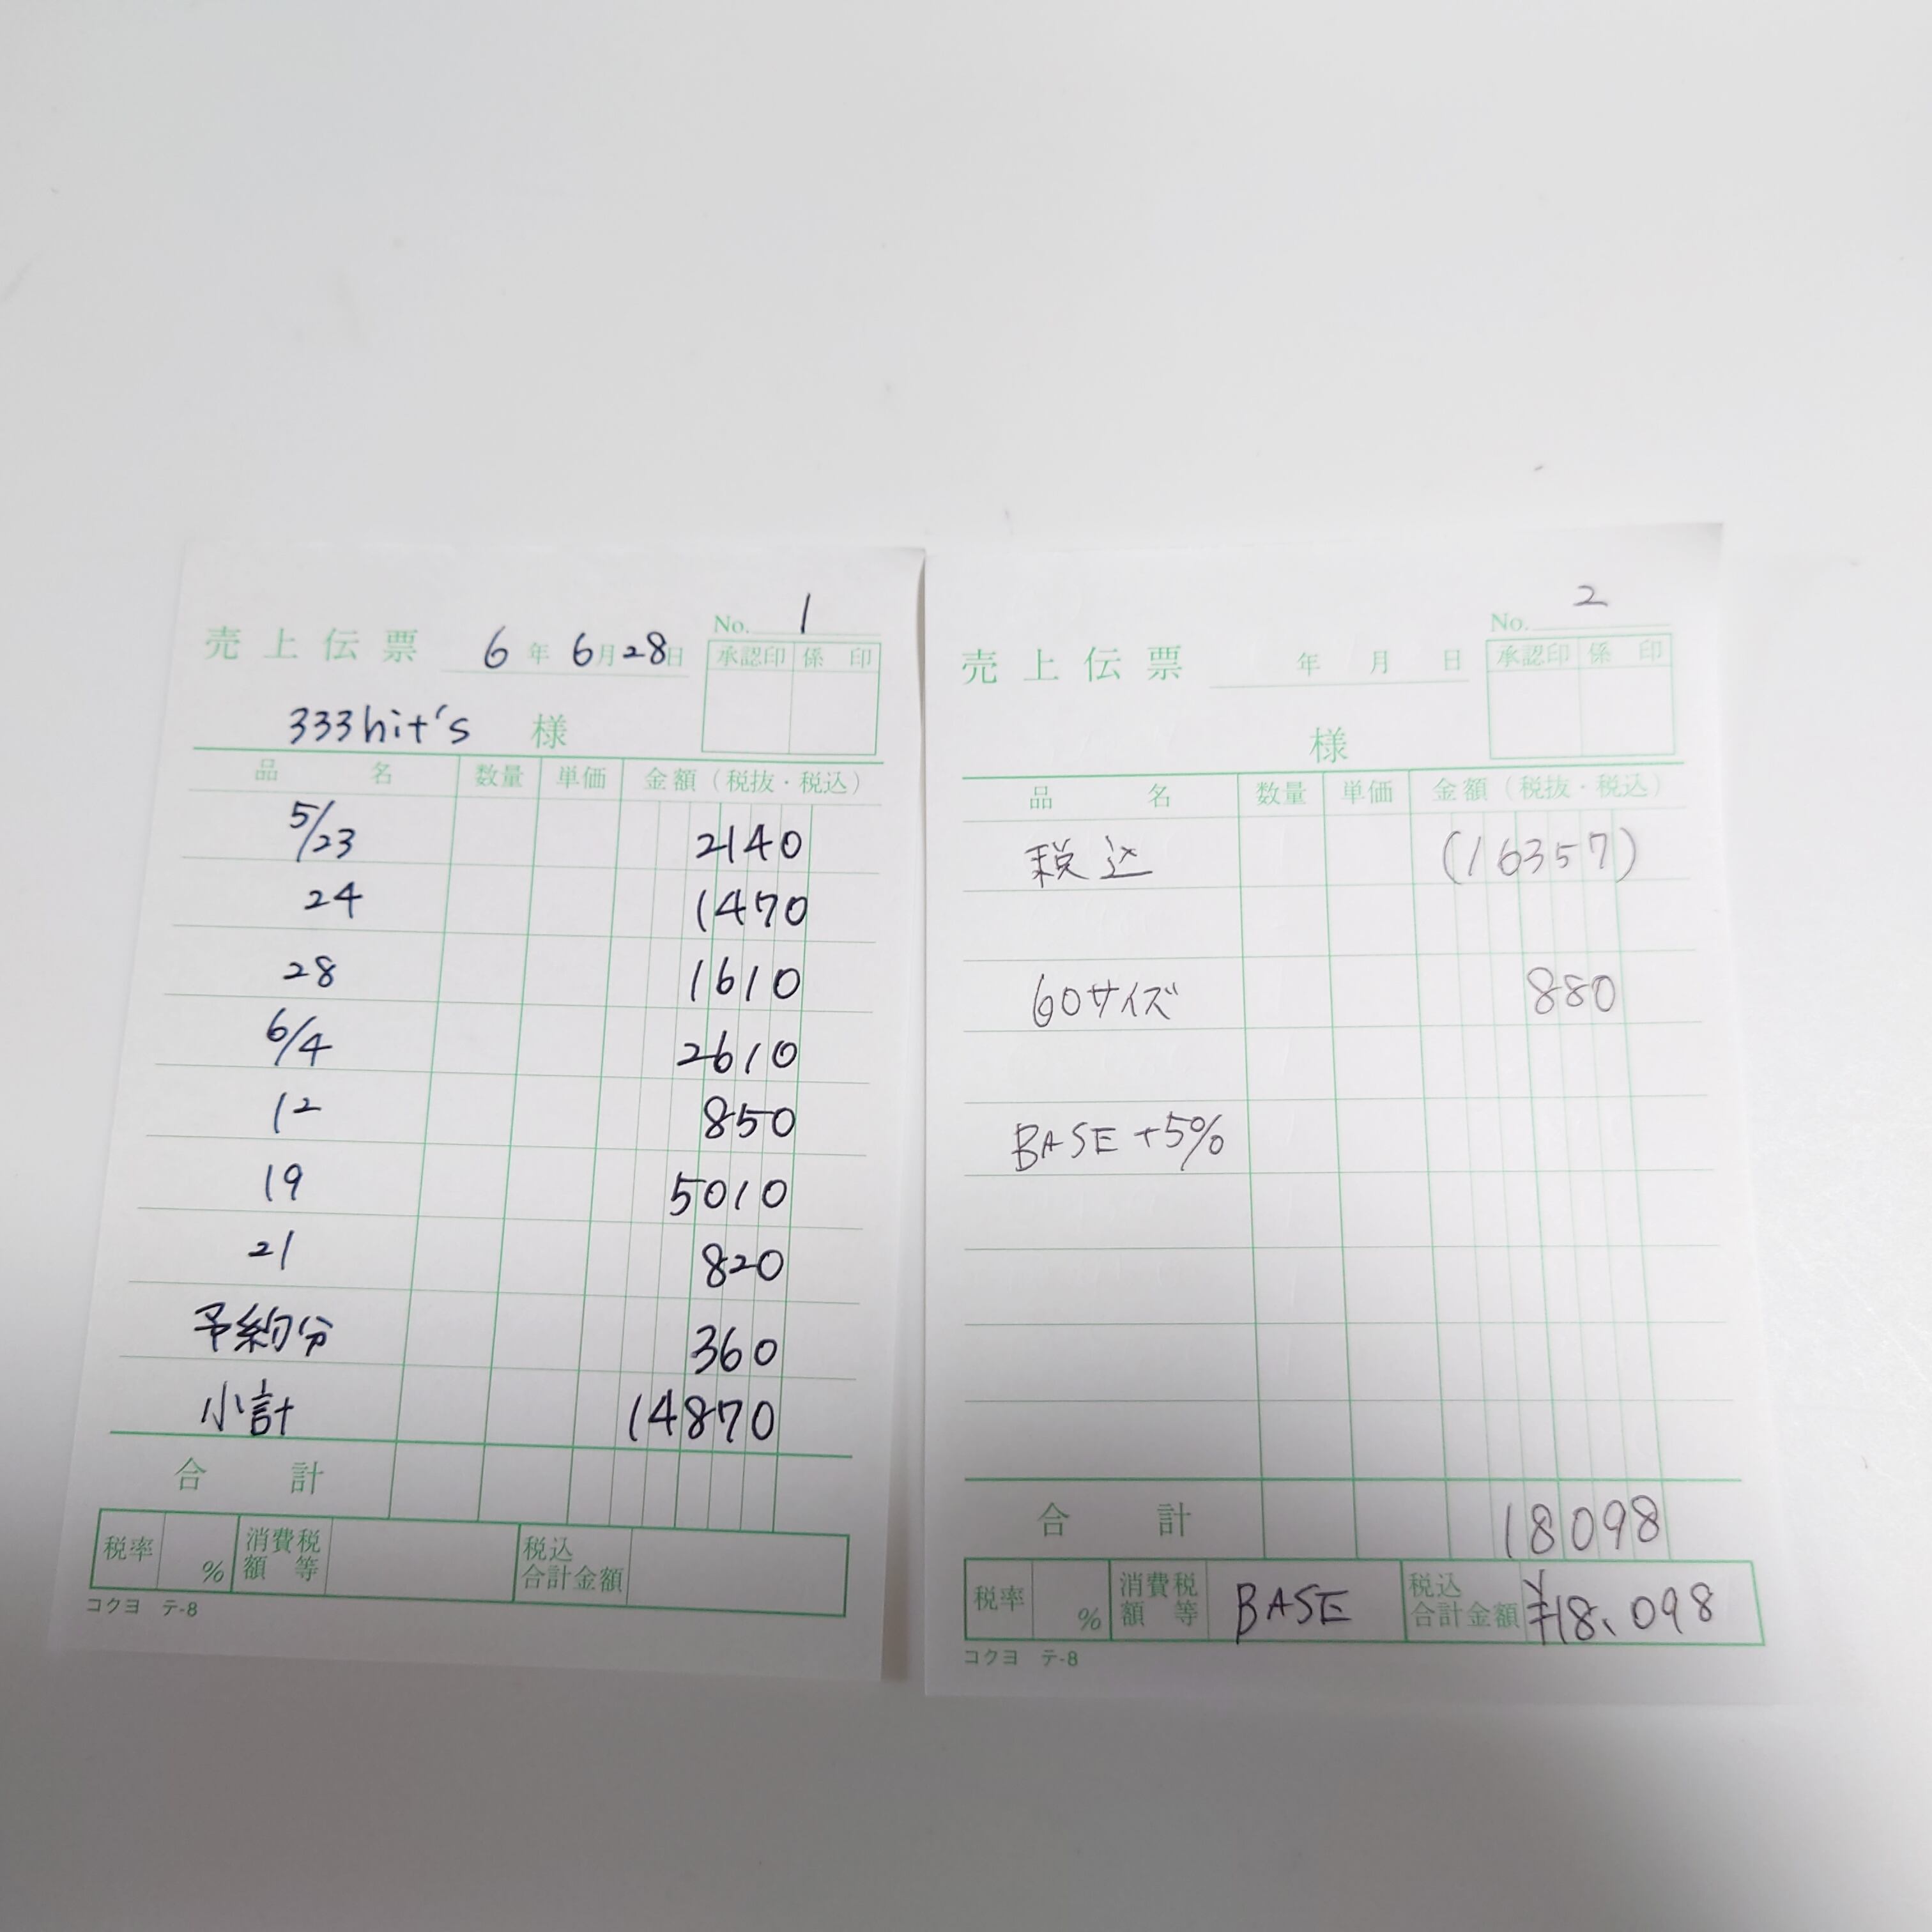 No. 1
売上伝票 6年6月28日
承認印 係印
333hit's 様
品名 数量 単価 金額（税抜・税込）
5/23 2140
24 1470
28 1610
6/4 2610
12 850
19 5010
21 820
予約分 360
小計 14870
合計
税率 % 消費税額等 税込合計金額
コクヨ テ-8
No. 2
売上伝票 年 月 日
承認印 係印
様
品名 数量 単価 金額（税抜・税込）
税込 (16357)
60サイズ 880
BASE +5%
合計 18098
税率 % 消費税額等 BASE 税込合計金額 ¥18、098
コクヨ テ-8